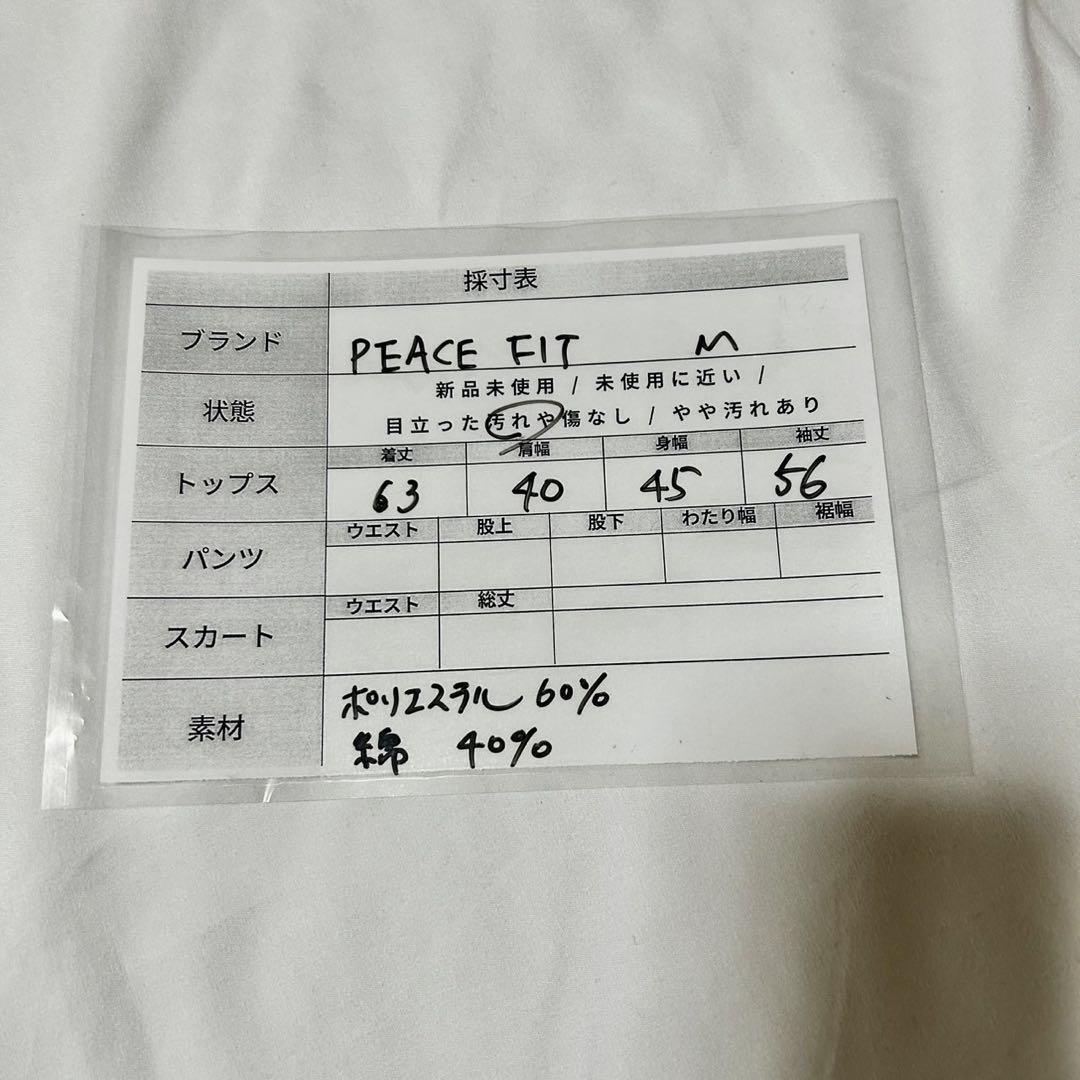 採寸表
ブランド PEACE FIT M
状態 新品未使用 / 未使用に近い /
目立った汚れや傷なし / やや汚れあり
トップス 着丈 肩幅 身幅 袖丈
63 40 45 56
パンツ ウエスト 股上 股下 わたり幅 裾幅
スカート ウエスト 総丈
素材 ポリエステル 60%
綿 40%